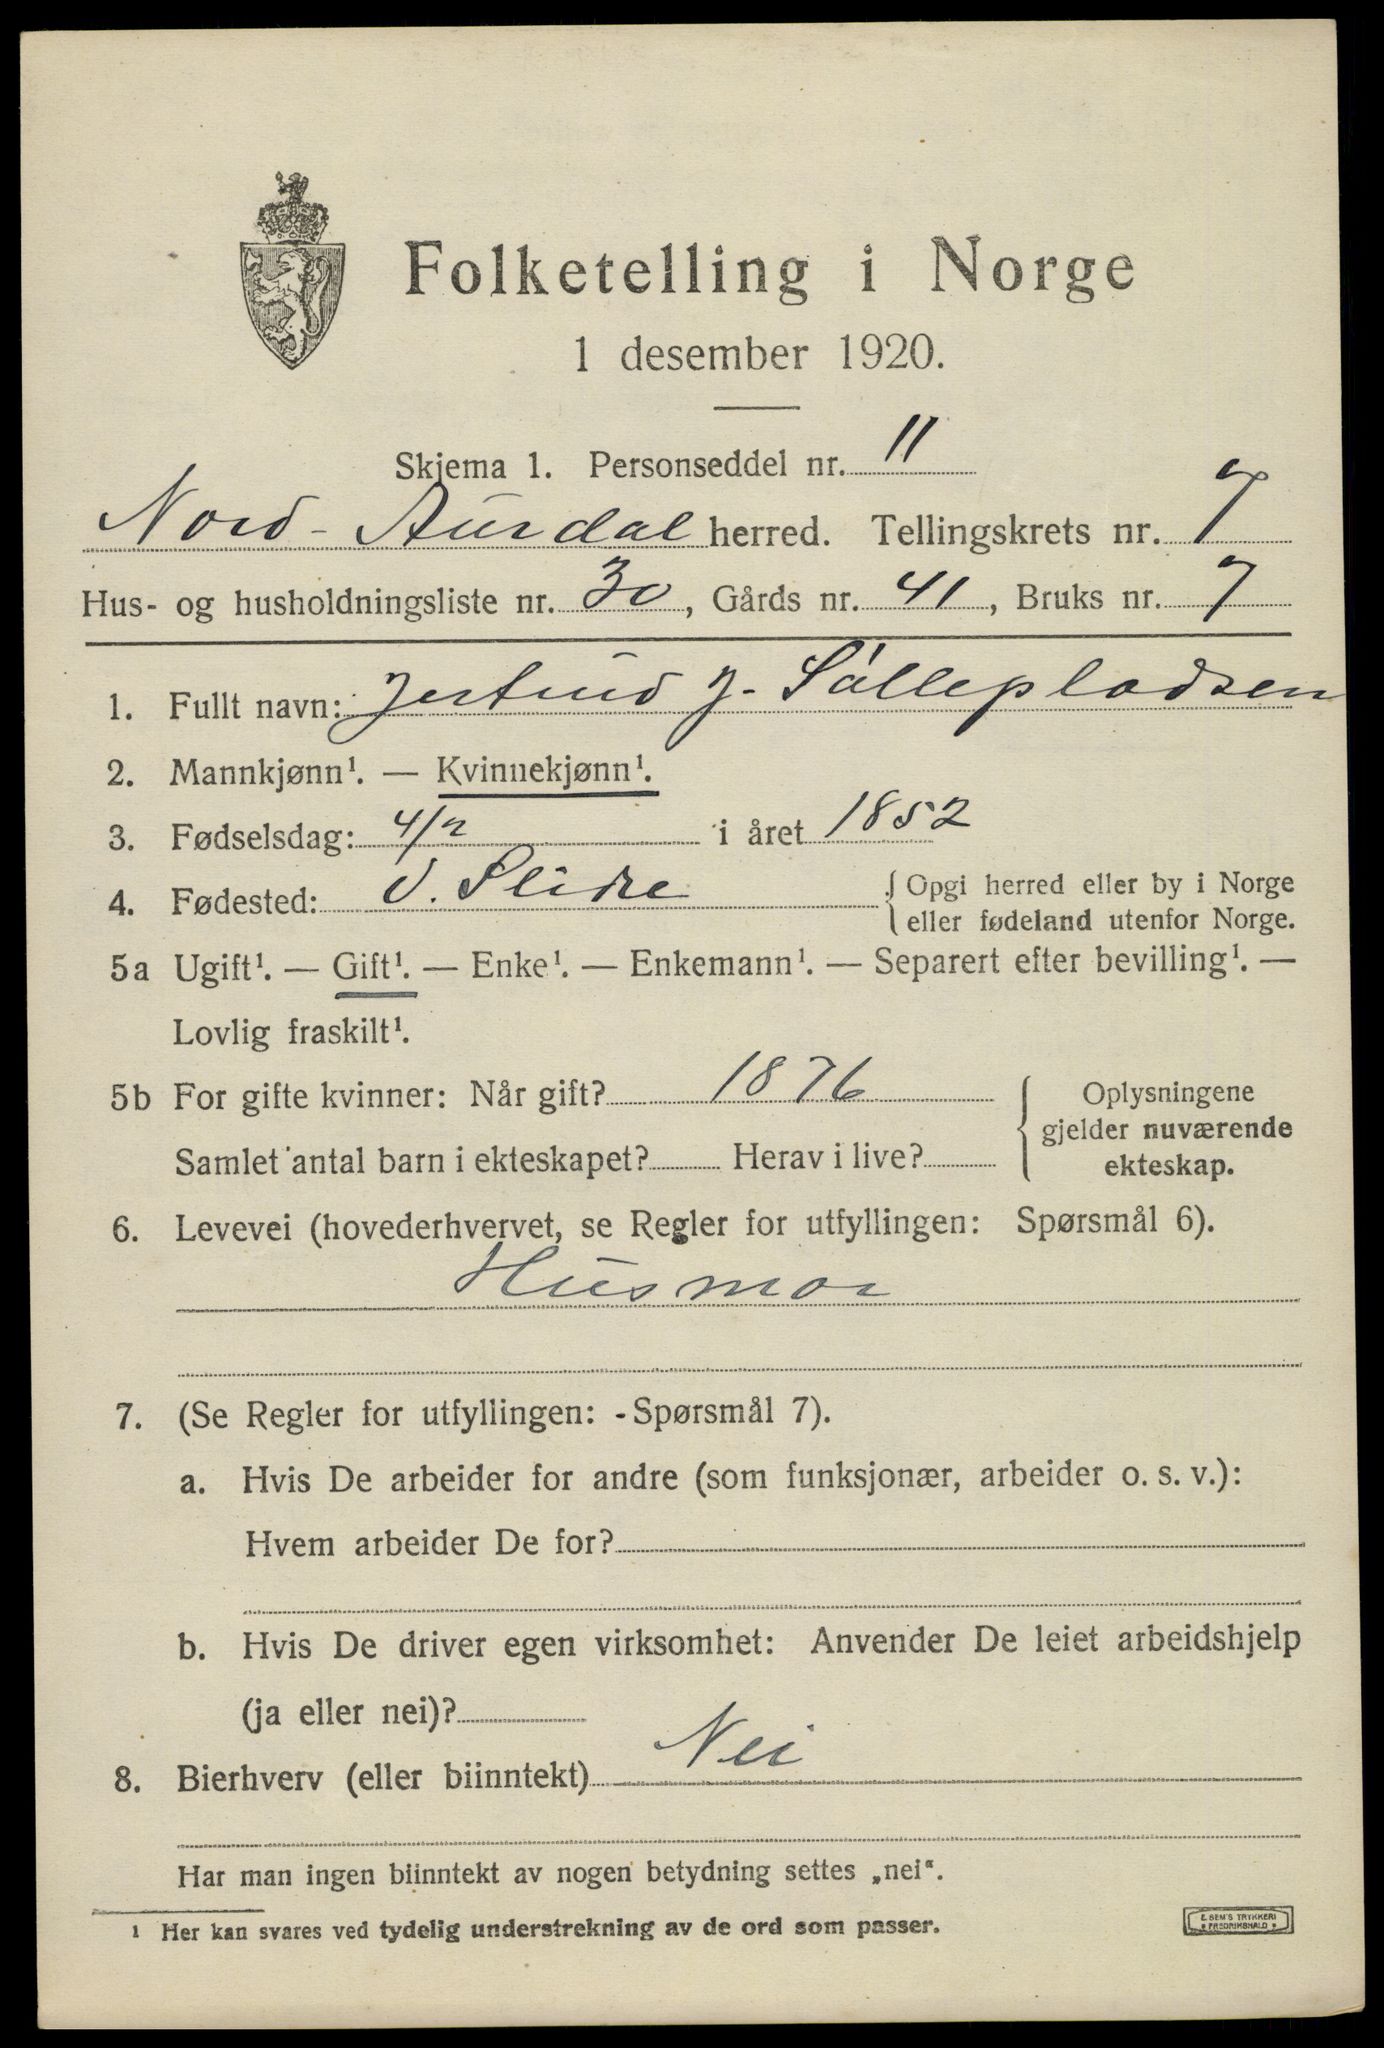 Folketelling i Norge
1 desember 1920.
Skjema 1. Personseddel nr. 11
Nord-Aurdal herred. Tellingskrets nr. 7
Hus- og husholdningsliste nr. 30, Gårds nr. 41, Bruks nr. 7
1. Fullt navn: Jertrud J. Sållepladsen
2. Mannkjønn¹. — Kvinnekjønn¹.
3. Fødselsdag: 4/2 i året 1852
4. Fødested: V. Slidre { Opgi herred eller by i Norge
eller fødeland utenfor Norge.
5a Ugift¹. — Gift¹. — Enke¹. — Enkemann¹. — Separert efter bevilling¹. —
Lovlig fraskilt¹.
5b For gifte kvinner: Når gift? 1876
Samlet antal barn i ekteskapet? Herav i live?
{ Oplysningene
gjelder nuværende
ekteskap.
6. Levevei (hovederhvervet, se Regler for utfyllingen: Spørsmål 6).
Husmor
7. (Se Regler for utfyllingen: - Spørsmål 7).
a. Hvis De arbeider for andre (som funksjonær, arbeider o. s. v.):
Hvem arbeider De for?
b. Hvis De driver egen virksomhet: Anvender De leiet arbeidshjelp
(ja eller nei)?
8. Bierhverv (eller biinntekt) Nei
Har man ingen biinntekt av nogen betydning settes „nei“.
¹ Her kan svares ved tydelig understrekning av de ord som passer.
E. SEM'S TRYKKERI
* FREDRIKSHALD *